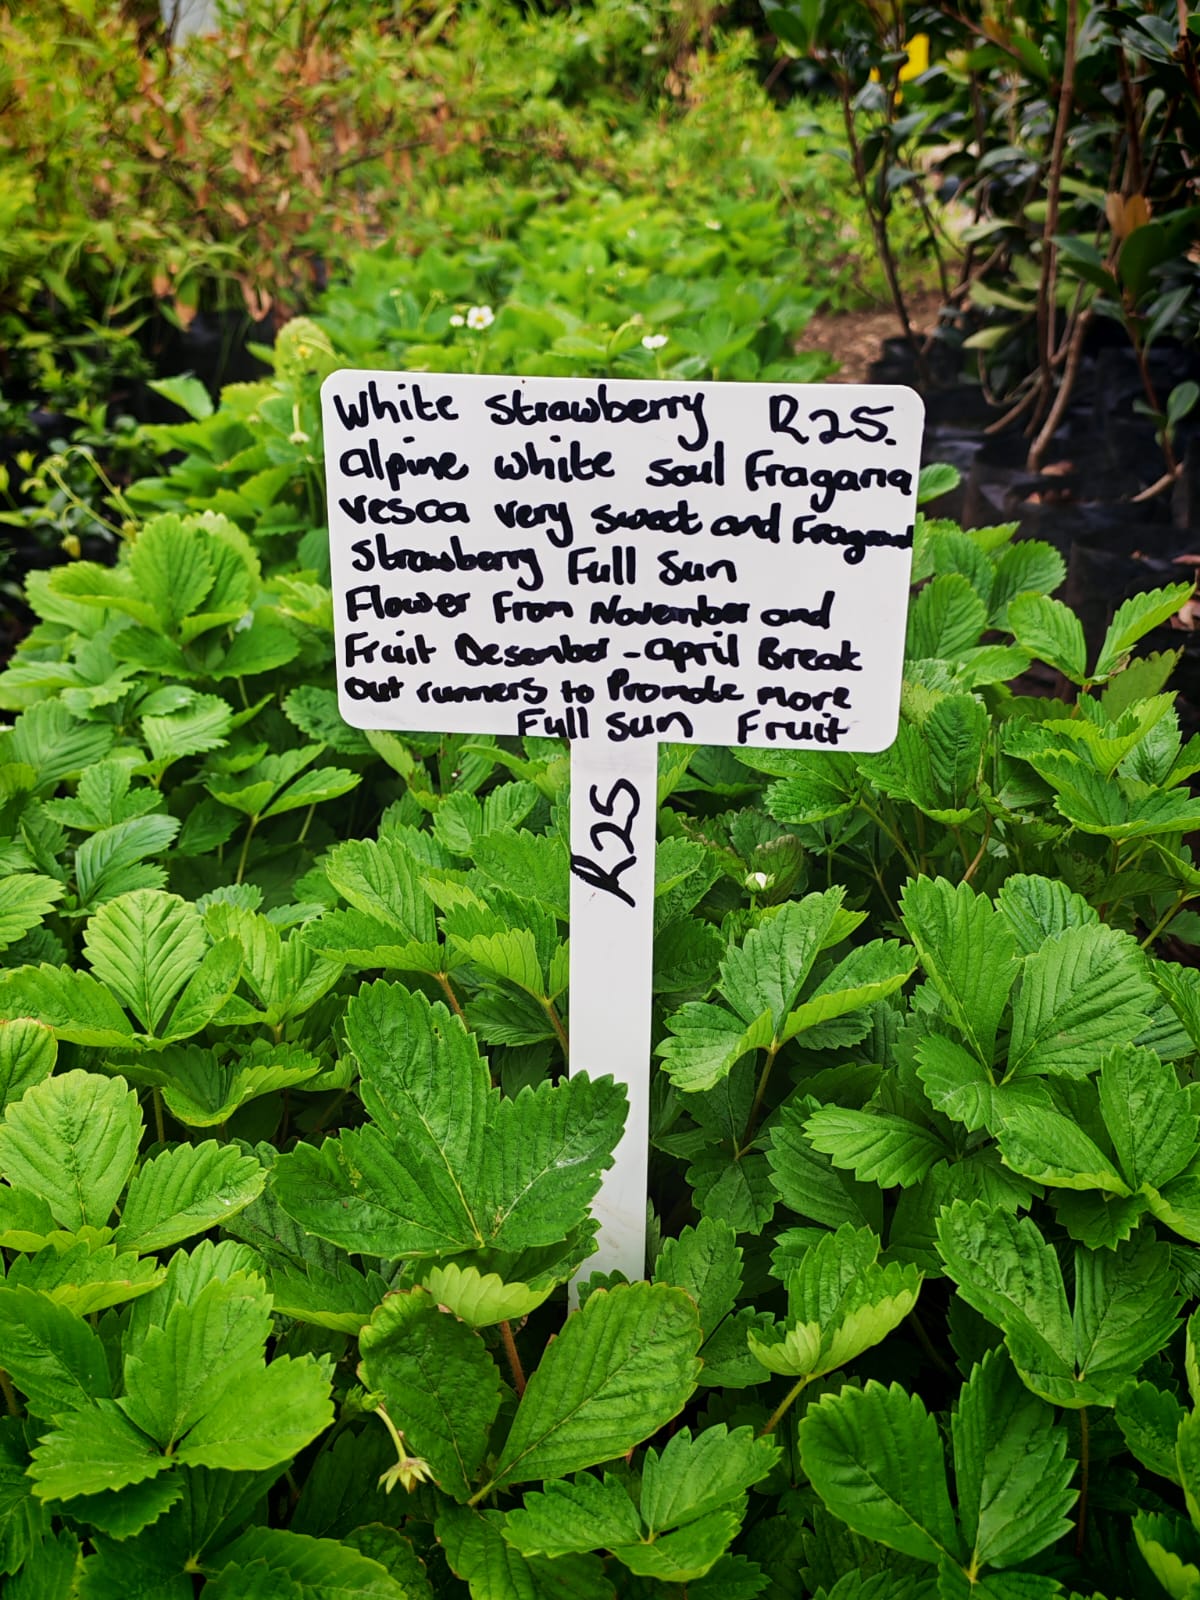 White Strawberry R25.
alpine white soul Fragaria
vesca very sweet and Fragrant
Strawberry Full Sun
Flower From November and
Fruit Desember - april Break
out runners to Promote more
Full Sun Fruit
R25